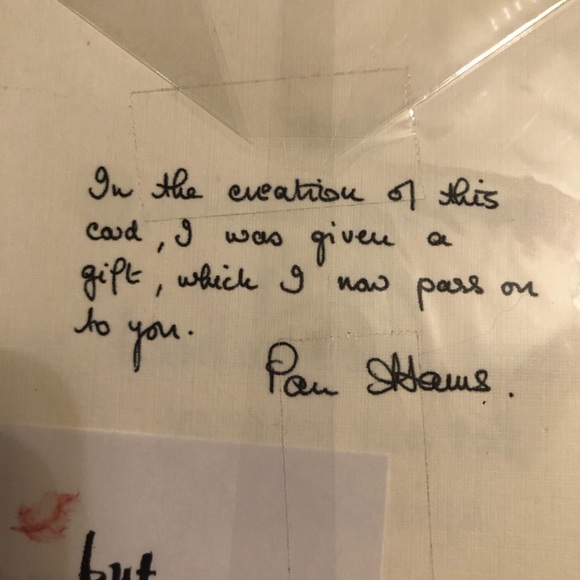 In the creation of this
card, I was given a
gift, which I now pass on
to you.
Pam Adams.
but